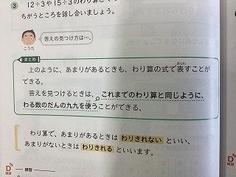 ③ 12÷3や15÷3のわり算とく
ちがうところを話し合いましょう。
答えの見つけ方は…。
こうた
まとめ
上のように、あまりがあるときも、わり算の式で表すことが
できる。
答えを見つけるときは、これまでのわり算と同じように、
わる数のだんの九九を使うことができる。
わり算で、あまりがあるときは わりきれない といい、
あまりがないときは わりきれる といいます。